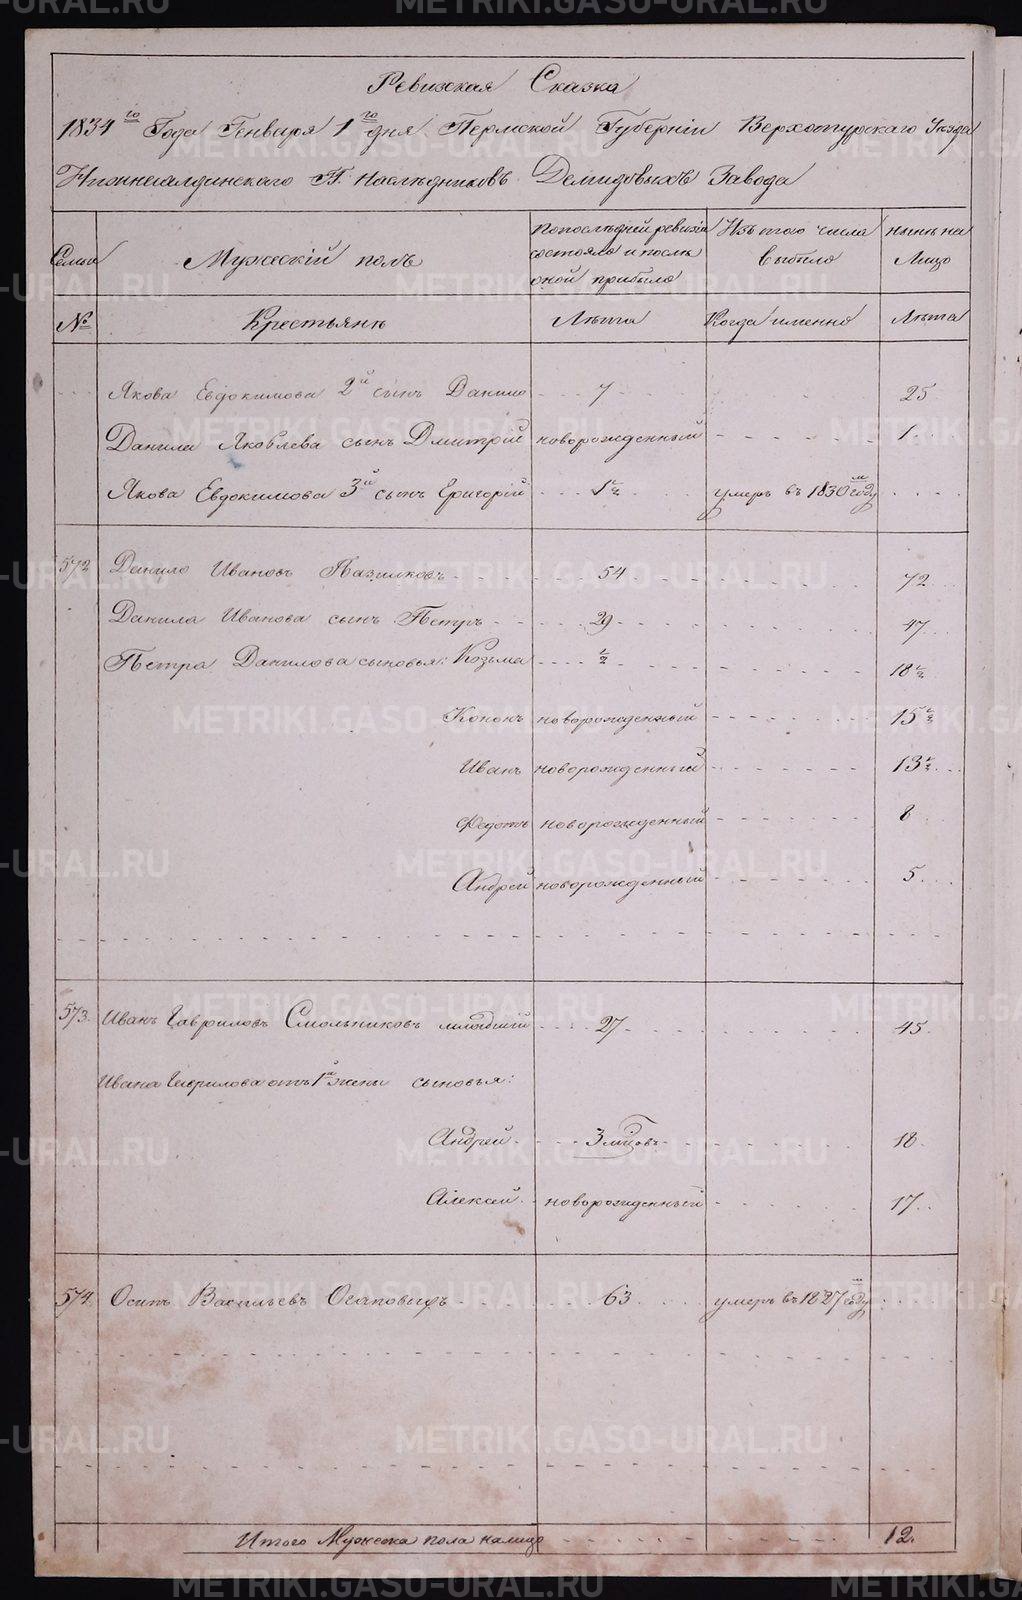 Ревизская Сказка
1834го Года Генваря 1го дня Пермской Губерніи Верхотурскаго Уезда
Нижнесалдинскаго Г. Наследниковъ Демидовыхъ Завода
Семьи Мужескій полъ По последней ревизіи состояло и после оной прибыло Изъ того числа выбыло ныне на лицо
№ Крестьяне Лета Когда именно Лета
Якова Евдокимова 2й сынъ Данило 7 25
Данила Яковлева сынъ Дмитрій новорожденный 1
Якова Евдокимова 3й сынъ Григорій 1½ умеръ въ 1830м году
572 Данило Ивановъ 54 72
Данила Иванова сынъ Петръ 29 47
Петра Данилова сыновья: Козьма ½ 18½
Кононъ новорожденный 15½
Иванъ новорожденный 13½
Федотъ новорожденный 8
Андрей новорожденный 5
573. Иванъ Гавриловъ Смольниковъ младшій 27 45
Ивана Гаврилова отъ 1й жены сыновья:
Андрей 3 мцовъ 18
Алексей новорожденный 17
574. Осипъ Васильевъ 63 умеръ въ 1827м году
Итого Мужеска пола налицо 12.
METRIKI.GASO-URAL.RU